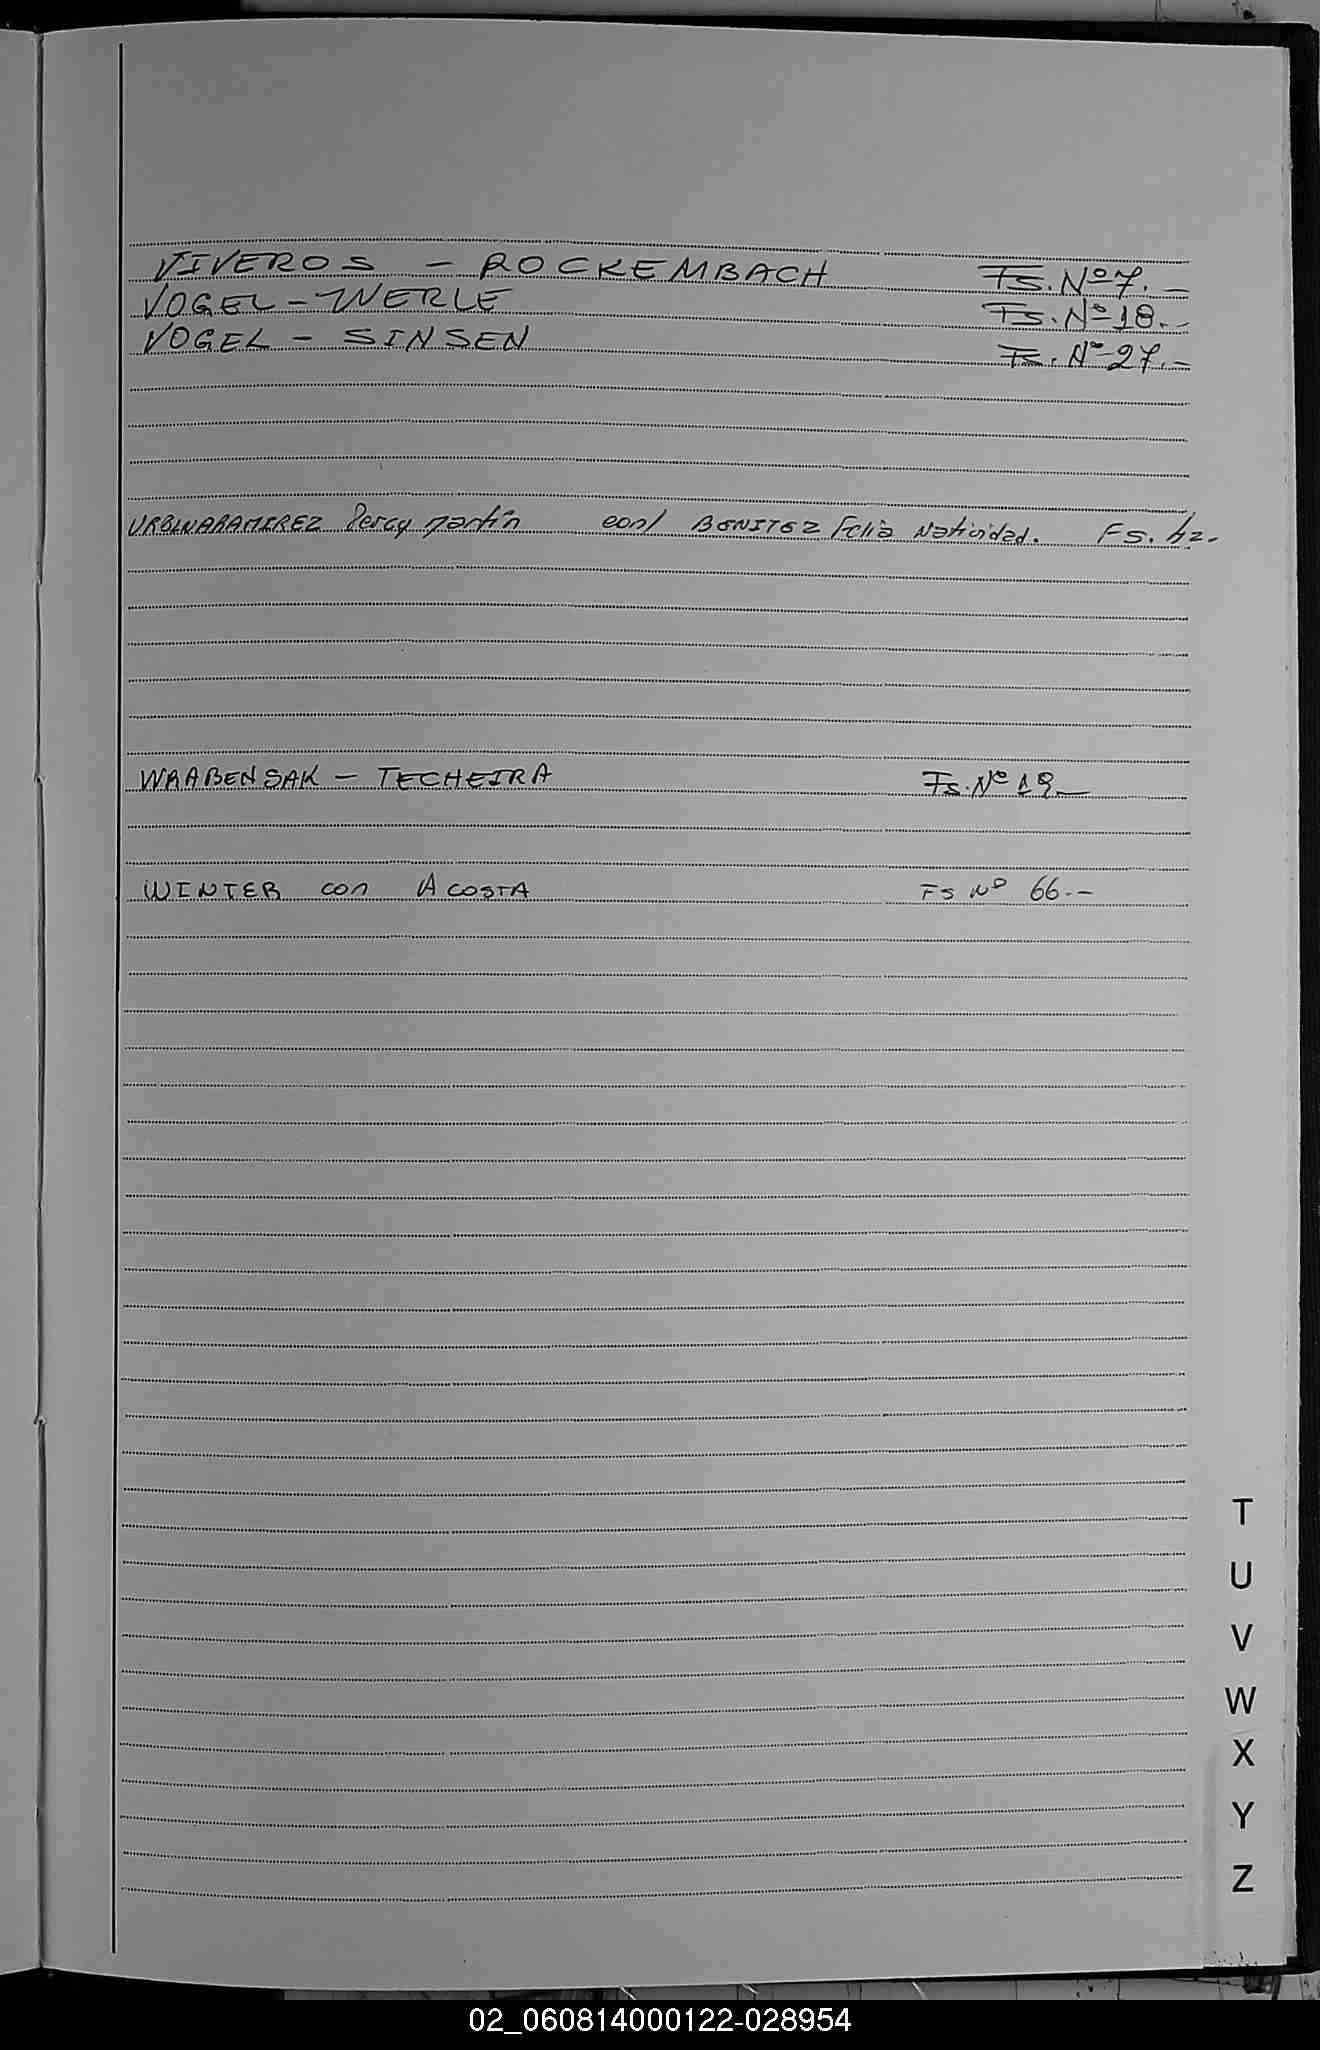 VIVEROS - ROCKEMBACH Fs. Nº 7.-
VOGEL - WERLE Fs. Nº 18.-
VOGEL - SINSEN Fs. Nº 27.-
URBINA RAMIREZ Percy Martín con/ BENITEZ Felia Natividad. Fs. 42.
WRABENSAK - TECHEIRA Fs. Nº 19.-
WINTER con ACOSTA FS Nº 66.--
T
U
V
W
X
Y
Z
02_060814000122-028954